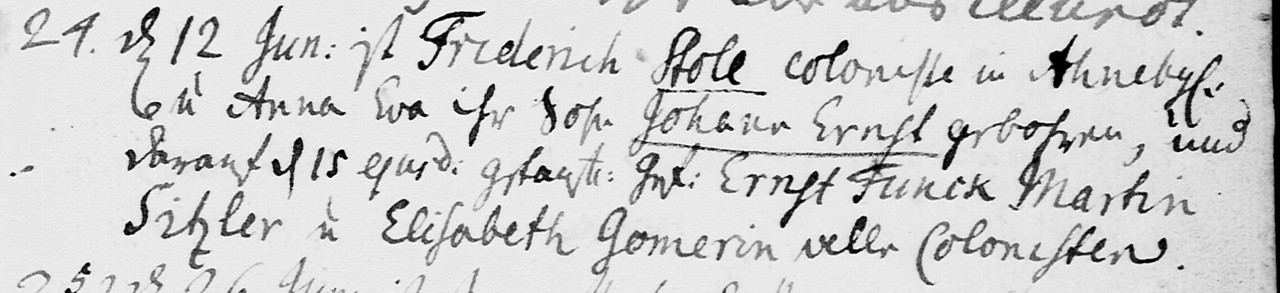 24. d 12 Jun: ist Friderich Stole coloniste in Ahnebÿl:
u Anna Eva ihr Sohn Johann Ernst gebohren, und
darauf d 15 ejusd: getauft: Gev: Ernst Funck Martin
Sitzler u Elisabeth Gomerin alle Colonisten.